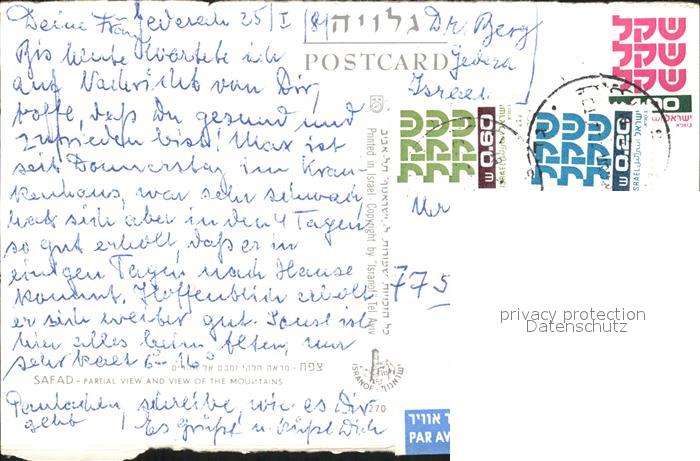 Gedera 25/I/81
Bis heute wartete ich
auf Nachricht von Dir,
hoffe, daß Du gesund und
zufrieden bist! Max ist
seit Donnerstag im Kran-
kenhaus, war sehr schwach,
hat sich aber in den 4 Tagen
so gut erholt, daß er in
einigen Tagen nach Hause
kommt. Hoffentlich erholt
er sich weiter gut. Sonst ist
hier alles beim Alten, nur
sehr kalt 6°-16°
schreibe, wie es Dir
geht
Es grüßt u. küßt Dich
גלויה
POSTCARD
Dr. Berg
Gedera
Israel
שקל
שקל
שקל
ישראל
שקל
שקל
שקל
0.60
ISRAEL
שקל
שקל
שקל
0.20
ISRAEL
775
Printed in Israel Copyright by "Isranof" Tel Aviv
צפת -
SAFAD - PARTIAL VIEW AND VIEW OF THE MOUNTAINS
ISRANOF
270
אוויר
PAR AV
privacy protection
Datenschutz